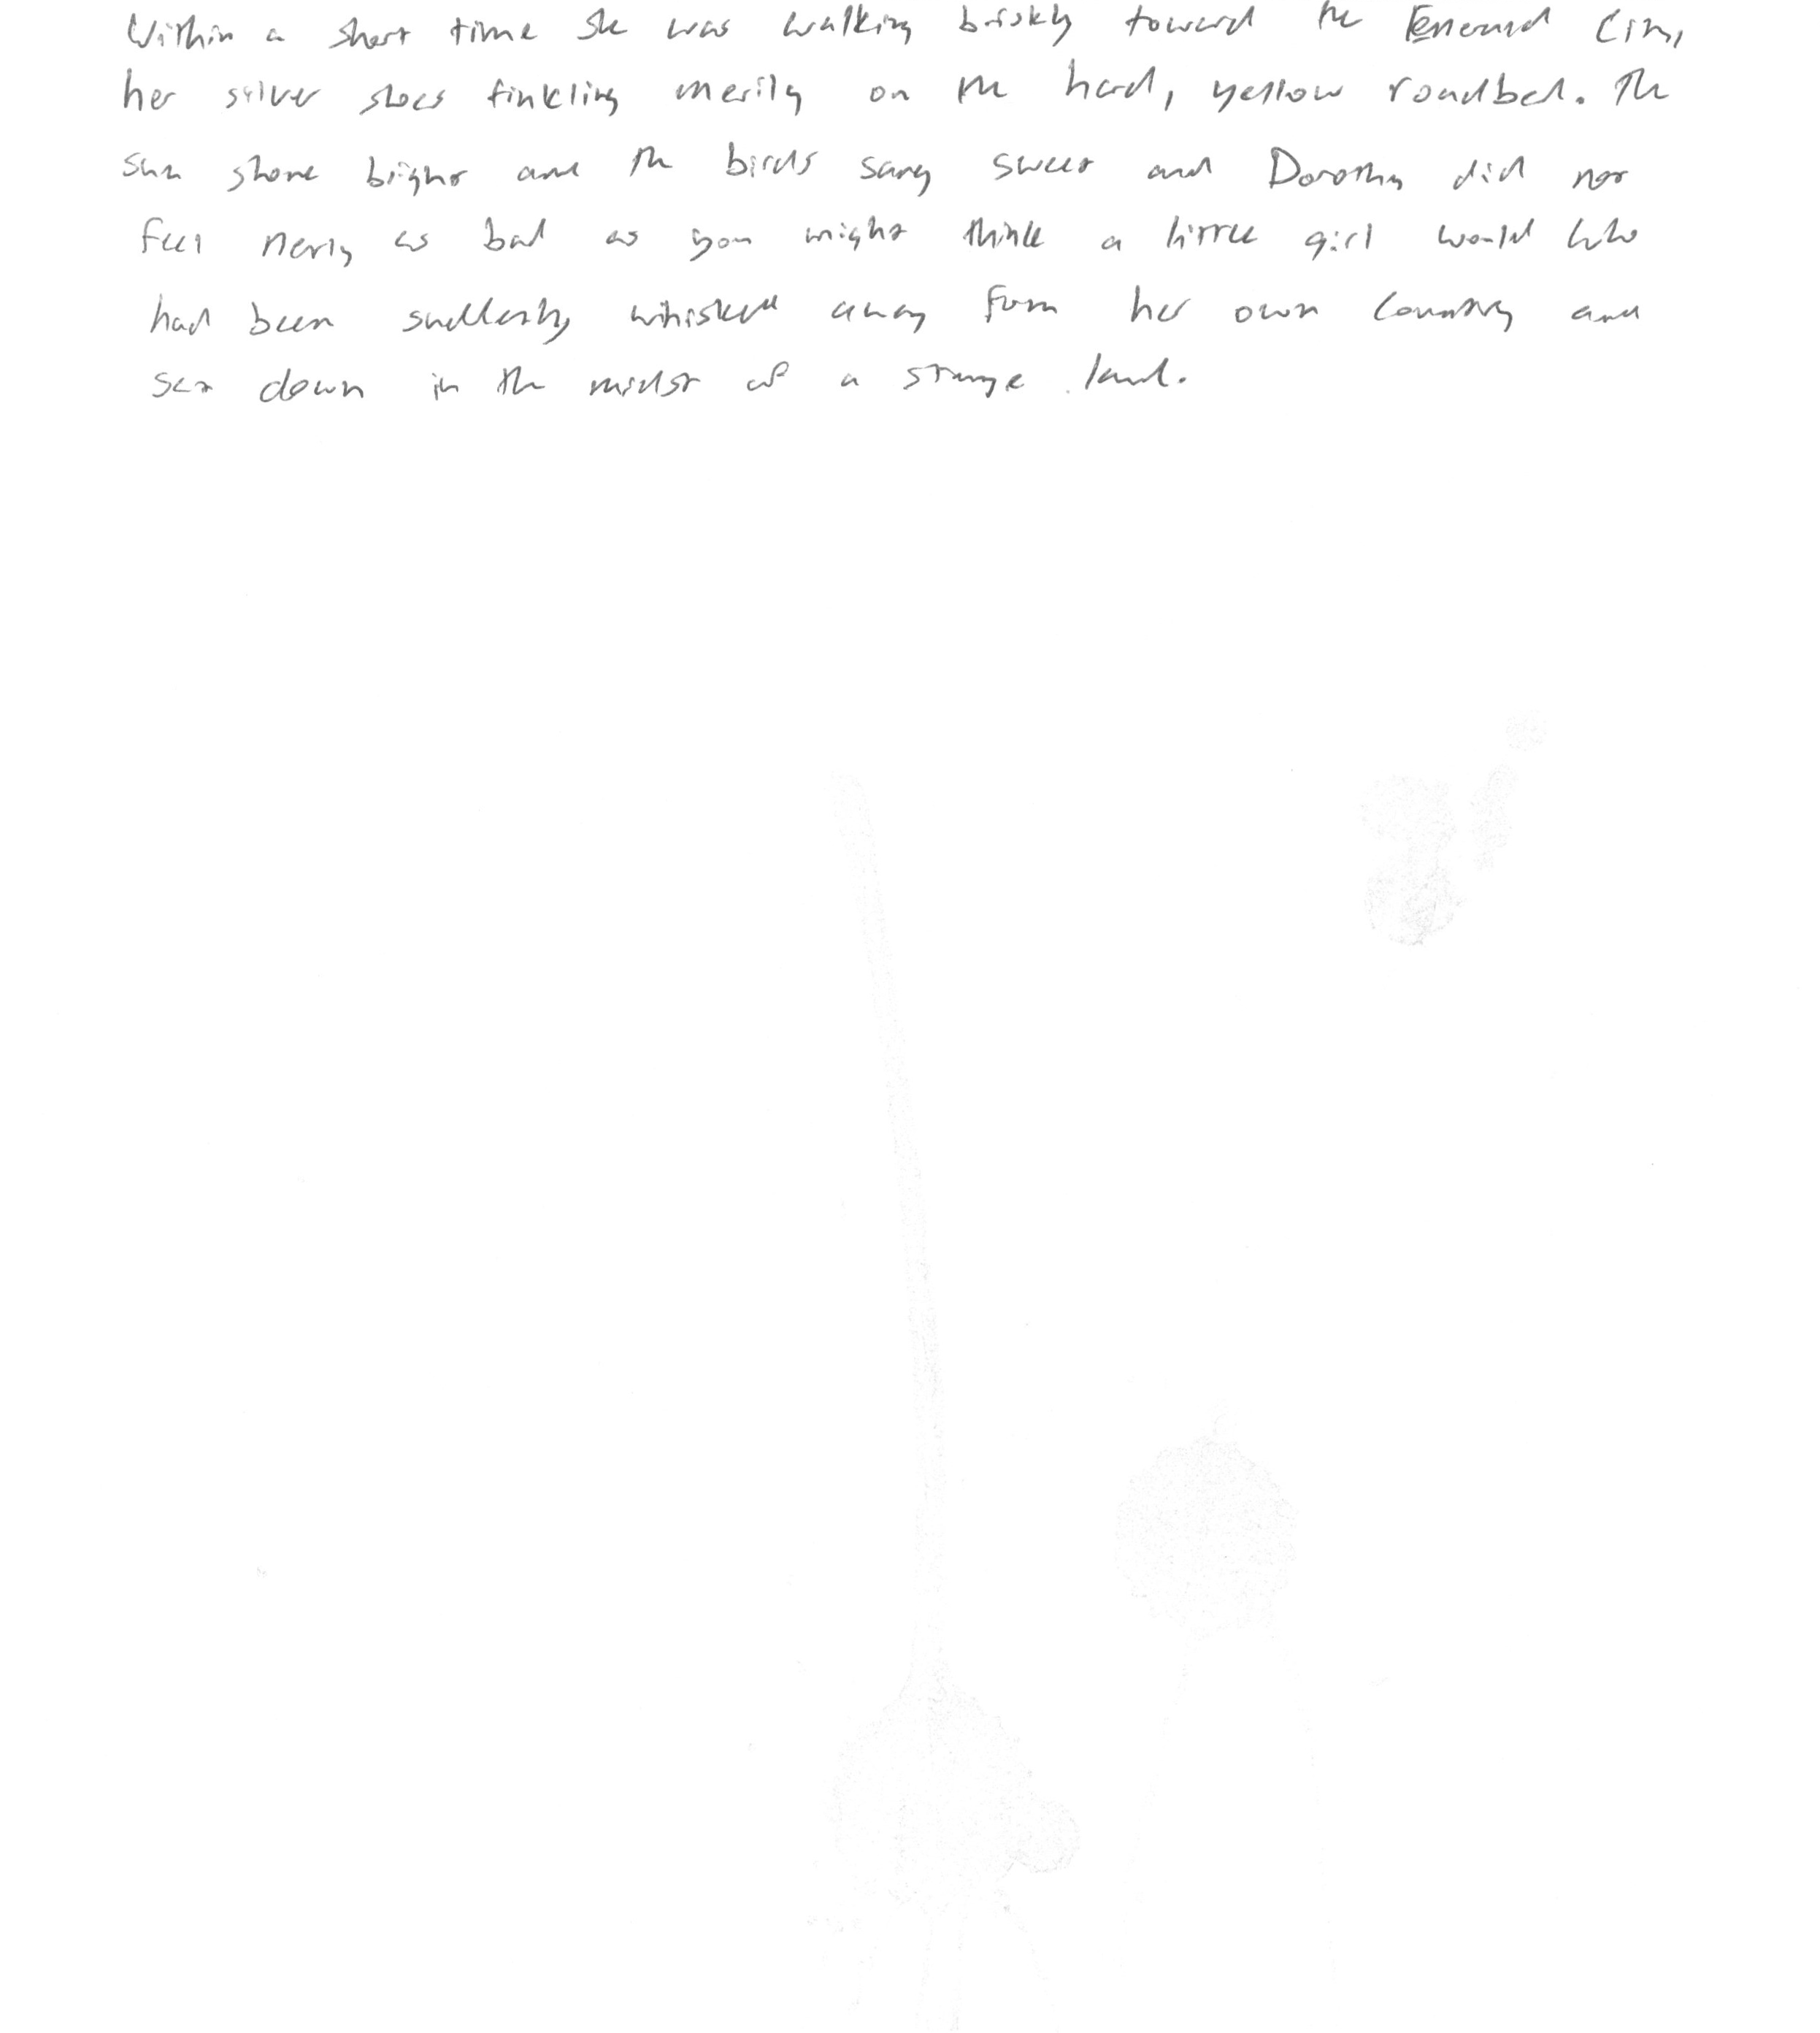 Within a short time she was walking briskly toward the Emerald City,
her silver shoes tinkling merily on the hard, yellow roadbed. The
sun shone bright and the birds sang sweet and Dorothy did not
feel nerly as bad as you might think a little girl would who
had been suddenly whisked away from her own country and
set down in the midst of a strange land.